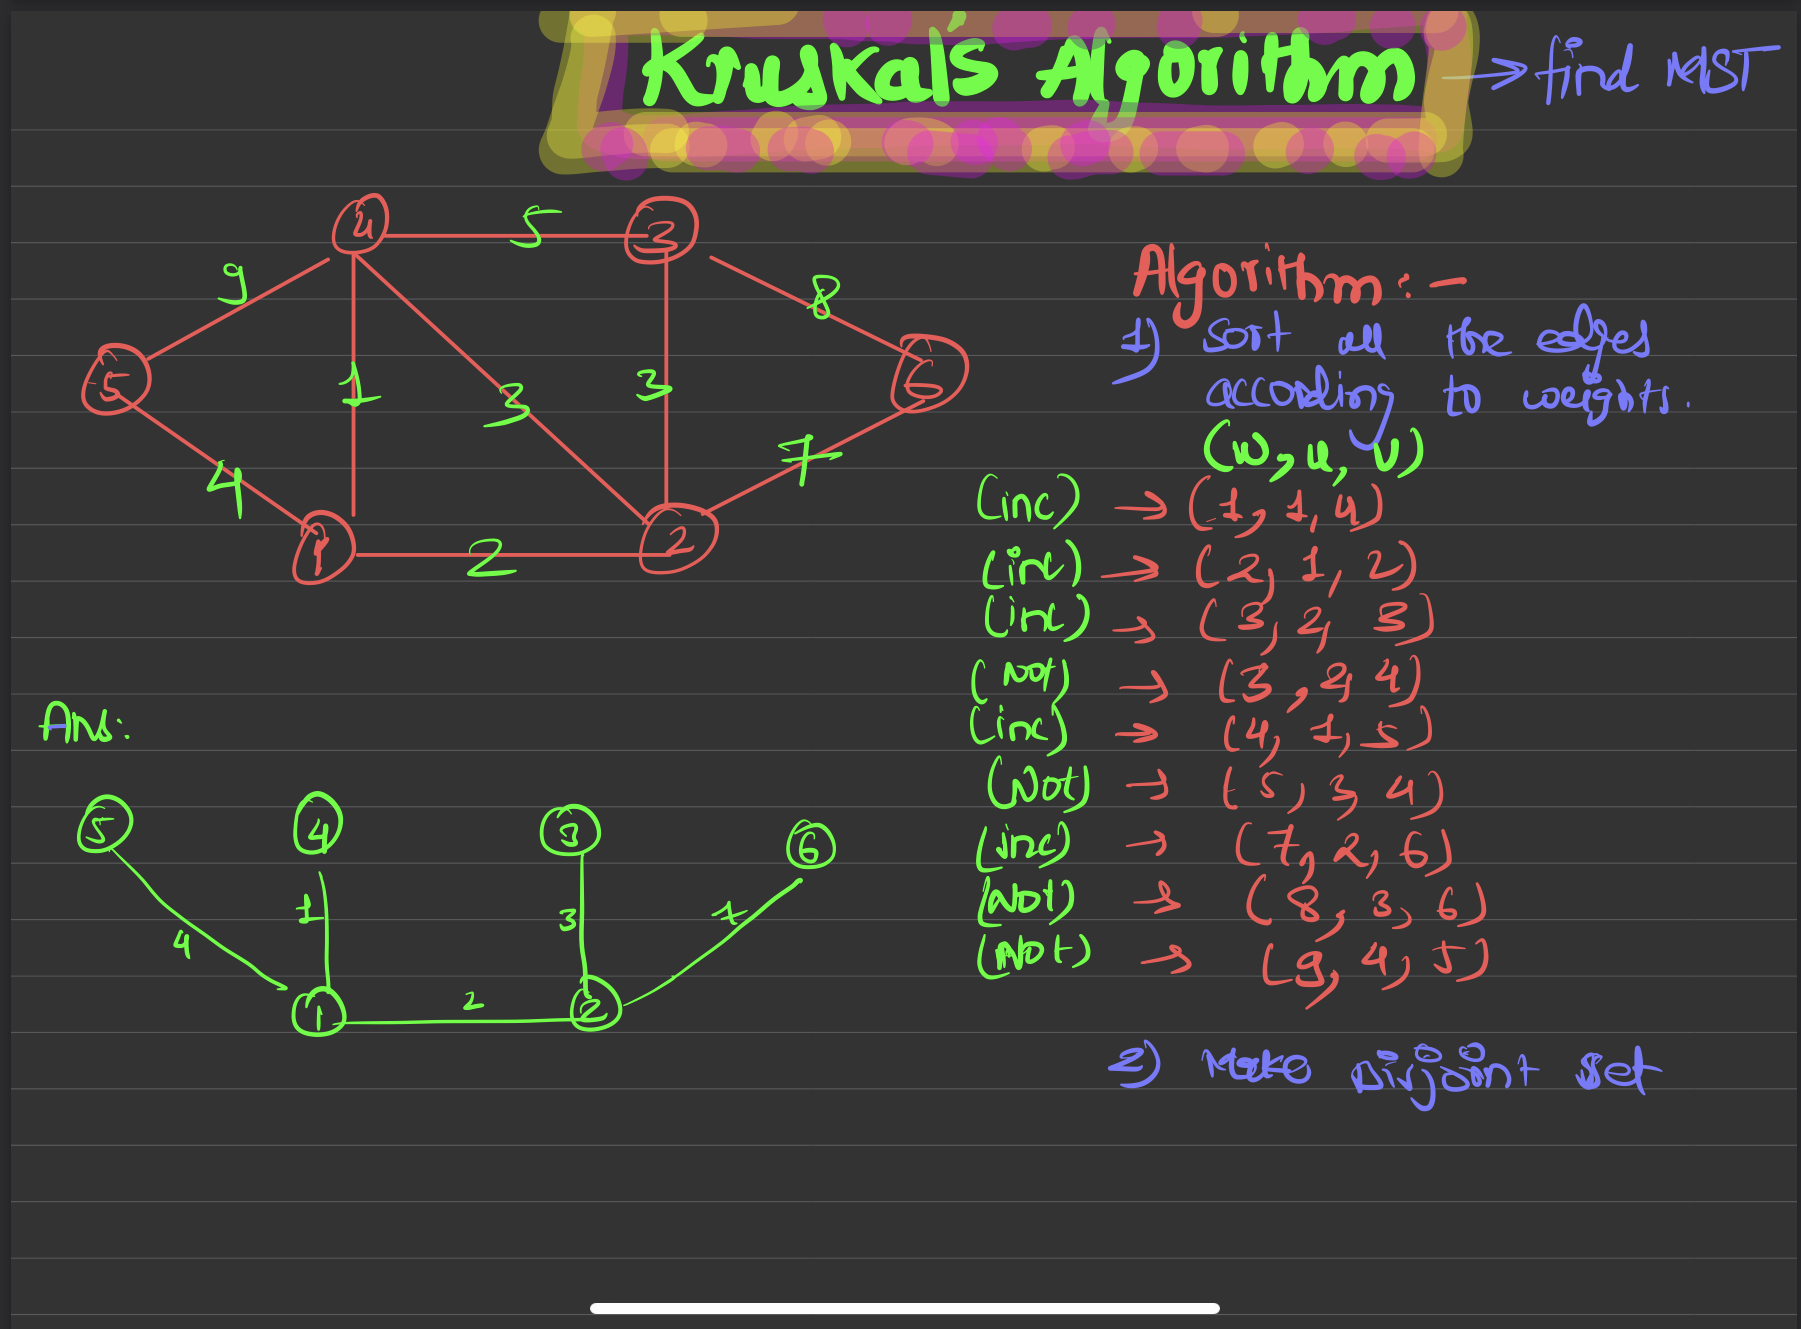 Kruskal's Algorithm → find MST
4 5 3
9 8
5 1 3 3 6
4 7
1 2 2
Algorithm: -
1) Sort all the edges
according to weights.
(w, u, v)
(inc) → (1, 1, 4)
(inc) → (2, 1, 2)
(inc) → (3, 2, 3)
(Not) → (3, 2, 4)
(inc) → (4, 1, 5)
(Not) → (5, 3, 4)
(inc) → (7, 2, 6)
(Not) → (8, 3, 6)
(Not) → (9, 4, 5)
2) Make Disjoint Set
Ans:
5 4 3 6
4 1 3 7
1 2 2